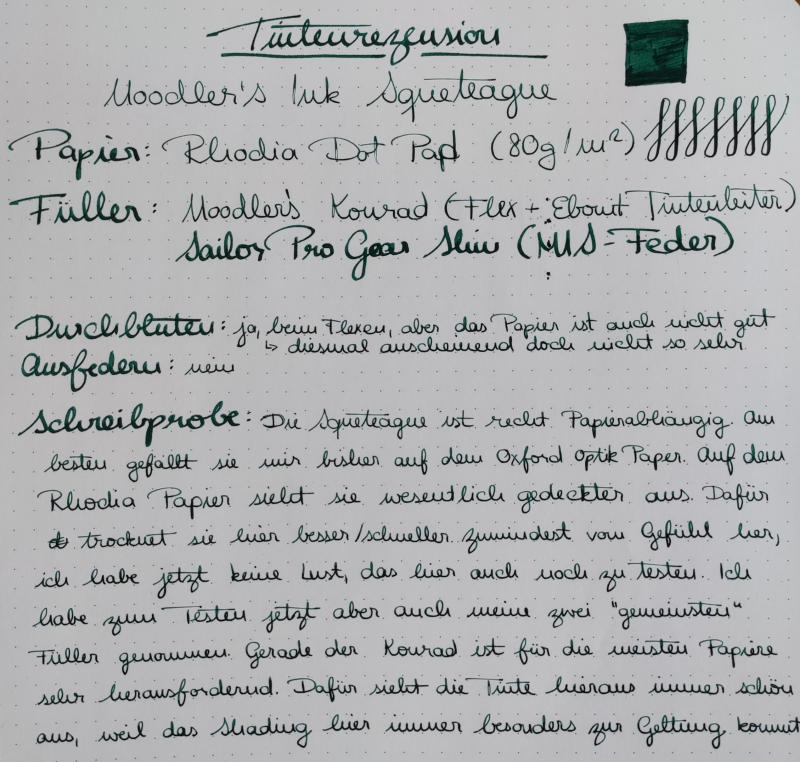 Tintenrezension
Noodler's Ink Squeteague
Papier: Rhodia Dot Pad (80g/m²)
Füller: Noodler's Konrad (Flex + Ebonit Tintenleiter)
Sailor Pro Gear Slim (MS-Feder)
Durchbluten: ja, beim Flexen, aber das Papier ist auch nicht gut
↳ diesmal anscheinend doch nicht so sehr
Ausfedern: nein
Schreibprobe: Die Squeteague ist recht Papierabhängig. Am
besten gefällt sie mir bisher auf dem Oxford Optik Paper. Auf dem
Rhodia Papier sieht sie wesentlich gedeckter aus. Dafür
trocknet sie hier besser/schneller. zumindest vom Gefühl her,
ich habe jetzt keine Lust, das hier auch noch zu testen. Ich
habe zum Testen jetzt aber auch meine zwei "gemeinsten"
Füller genommen. Gerade der Konrad ist für die meisten Papiere
sehr herausfordernd. Dafür sieht die Tinte hieraus immer schön
aus, weil das Shading hier immer besonders zur Geltung kommt